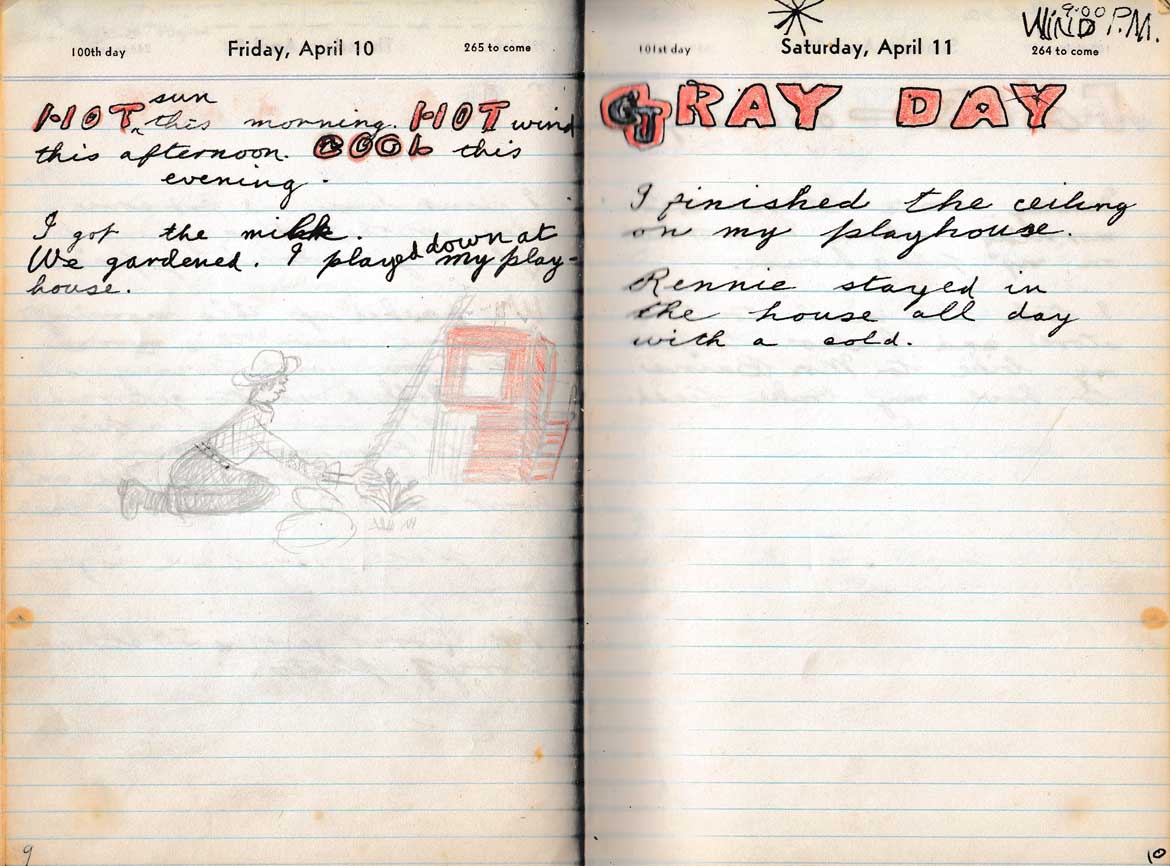 100th day Friday, April 10 265 to come
sun
HOT ^ this morning. HOT wind
this afternoon. COOL this
evening.
I got the milk.
We gardened. I played down at my play-
house.
9
9:00
WIND P.M.
101st day Saturday, April 11 264 to come
GRAY DAY
I finished the ceiling
on my playhouse.
Rennie stayed in
the house all day
with a cold.
10